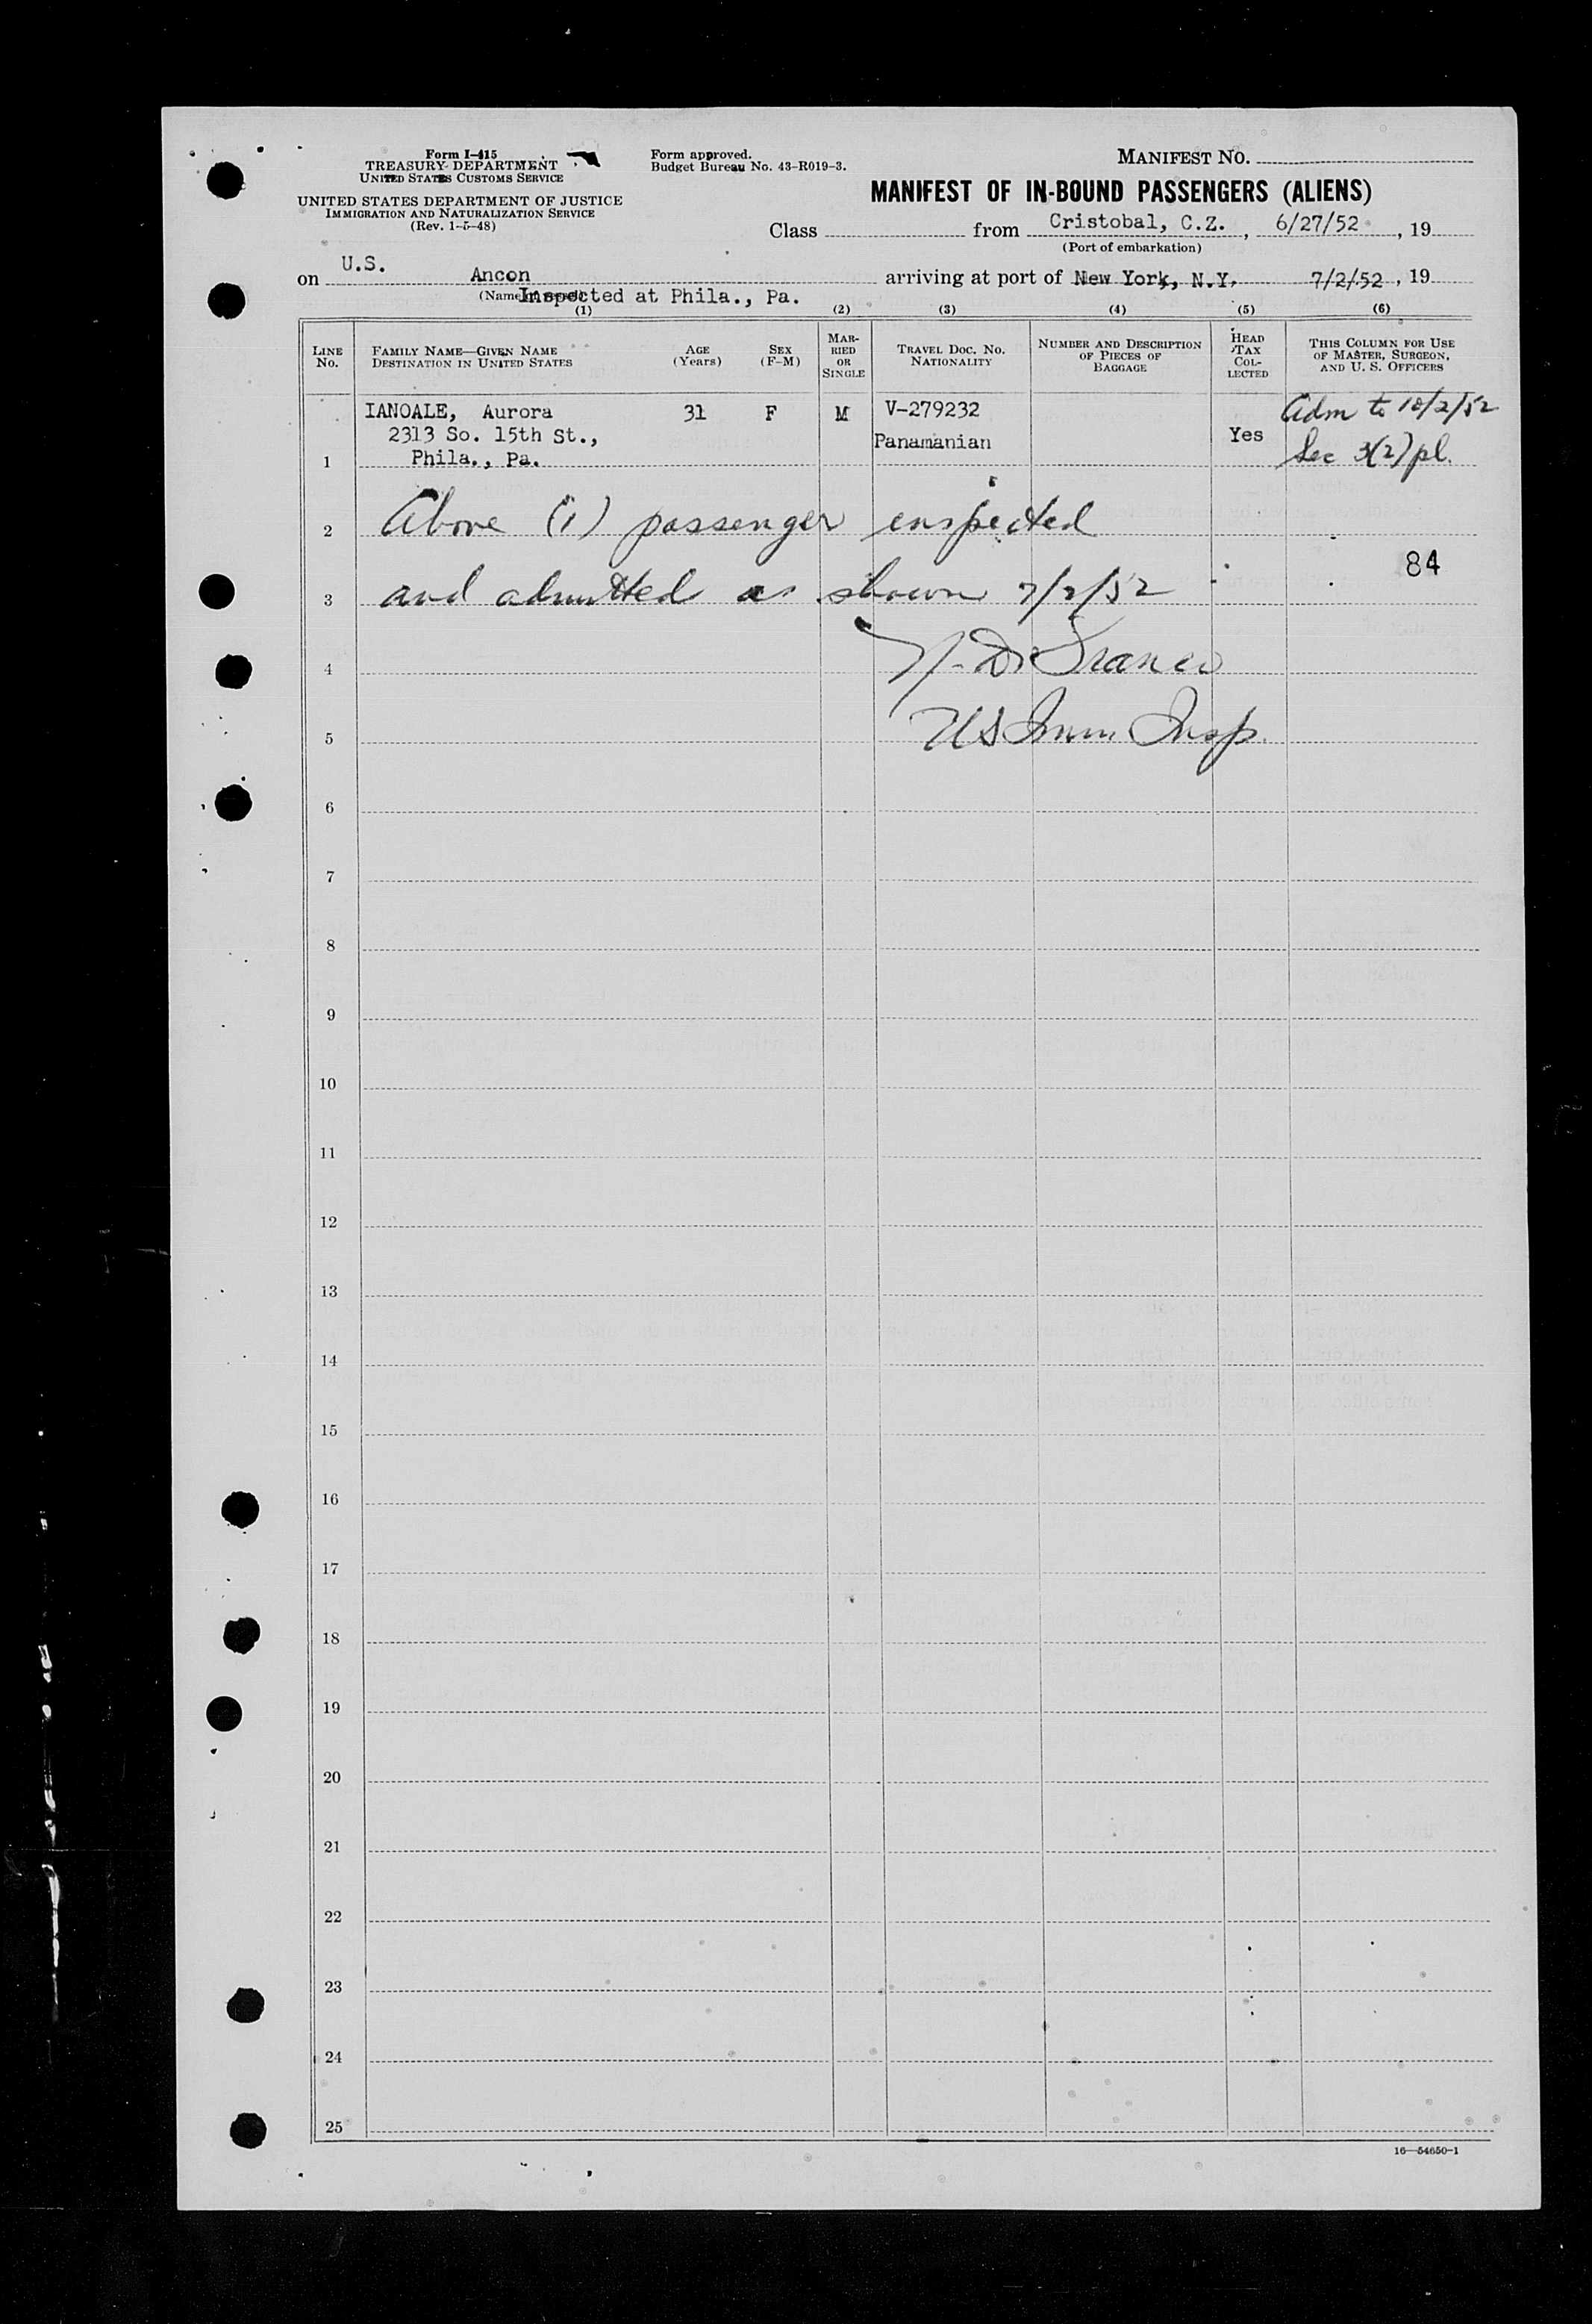 Form I-415
TREASURY DEPARTMENT
UNITED STATES CUSTOMS SERVICE
UNITED STATES DEPARTMENT OF JUSTICE
IMMIGRATION AND NATURALIZATION SERVICE
(Rev. 1-5-48)
Form approved.
Budget Bureau No. 43-R019-3.
MANIFEST NO.
MANIFEST OF IN-BOUND PASSENGERS (ALIENS)
Class from Cristobal, C.Z. , 6/27/52 , 19
(Port of embarkation)
on U.S. Ancon arriving at port of New York, N.Y. 7/2/52 , 19
Inspected at Phila., Pa.
(1) (2) (3) (4) (5) (6)
LINE NO. FAMILY NAME—GIVEN NAME DESTINATION IN UNITED STATES AGE (Years) SEX (F-M) MARRIED OR SINGLE TRAVEL DOC. NO. NATIONALITY NUMBER AND DESCRIPTION OF PIECES OF BAGGAGE HEAD TAX COLLECTED THIS COLUMN FOR USE OF MASTER, SURGEON, AND U. S. OFFICERS
IANOALE, Aurora 31 F M V-279232 Adm to 10/2/52
2313 So. 15th St., Panamanian Yes Sec 3(2) pl.
1 Phila., Pa.
2 Above (1) passenger inspected
84
3 and admitted as shown 7/2/52
4
5 US Imm Insp.
6
7
8
9
10
11
12
13
14
15
16
17
18
19
20
21
22
23
24
25
16—54650-1